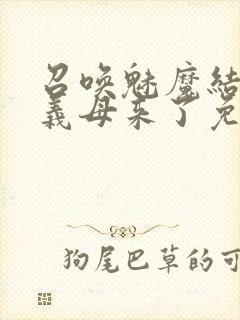 召唤魅魔结
义母来了免
狗尾巴草的可